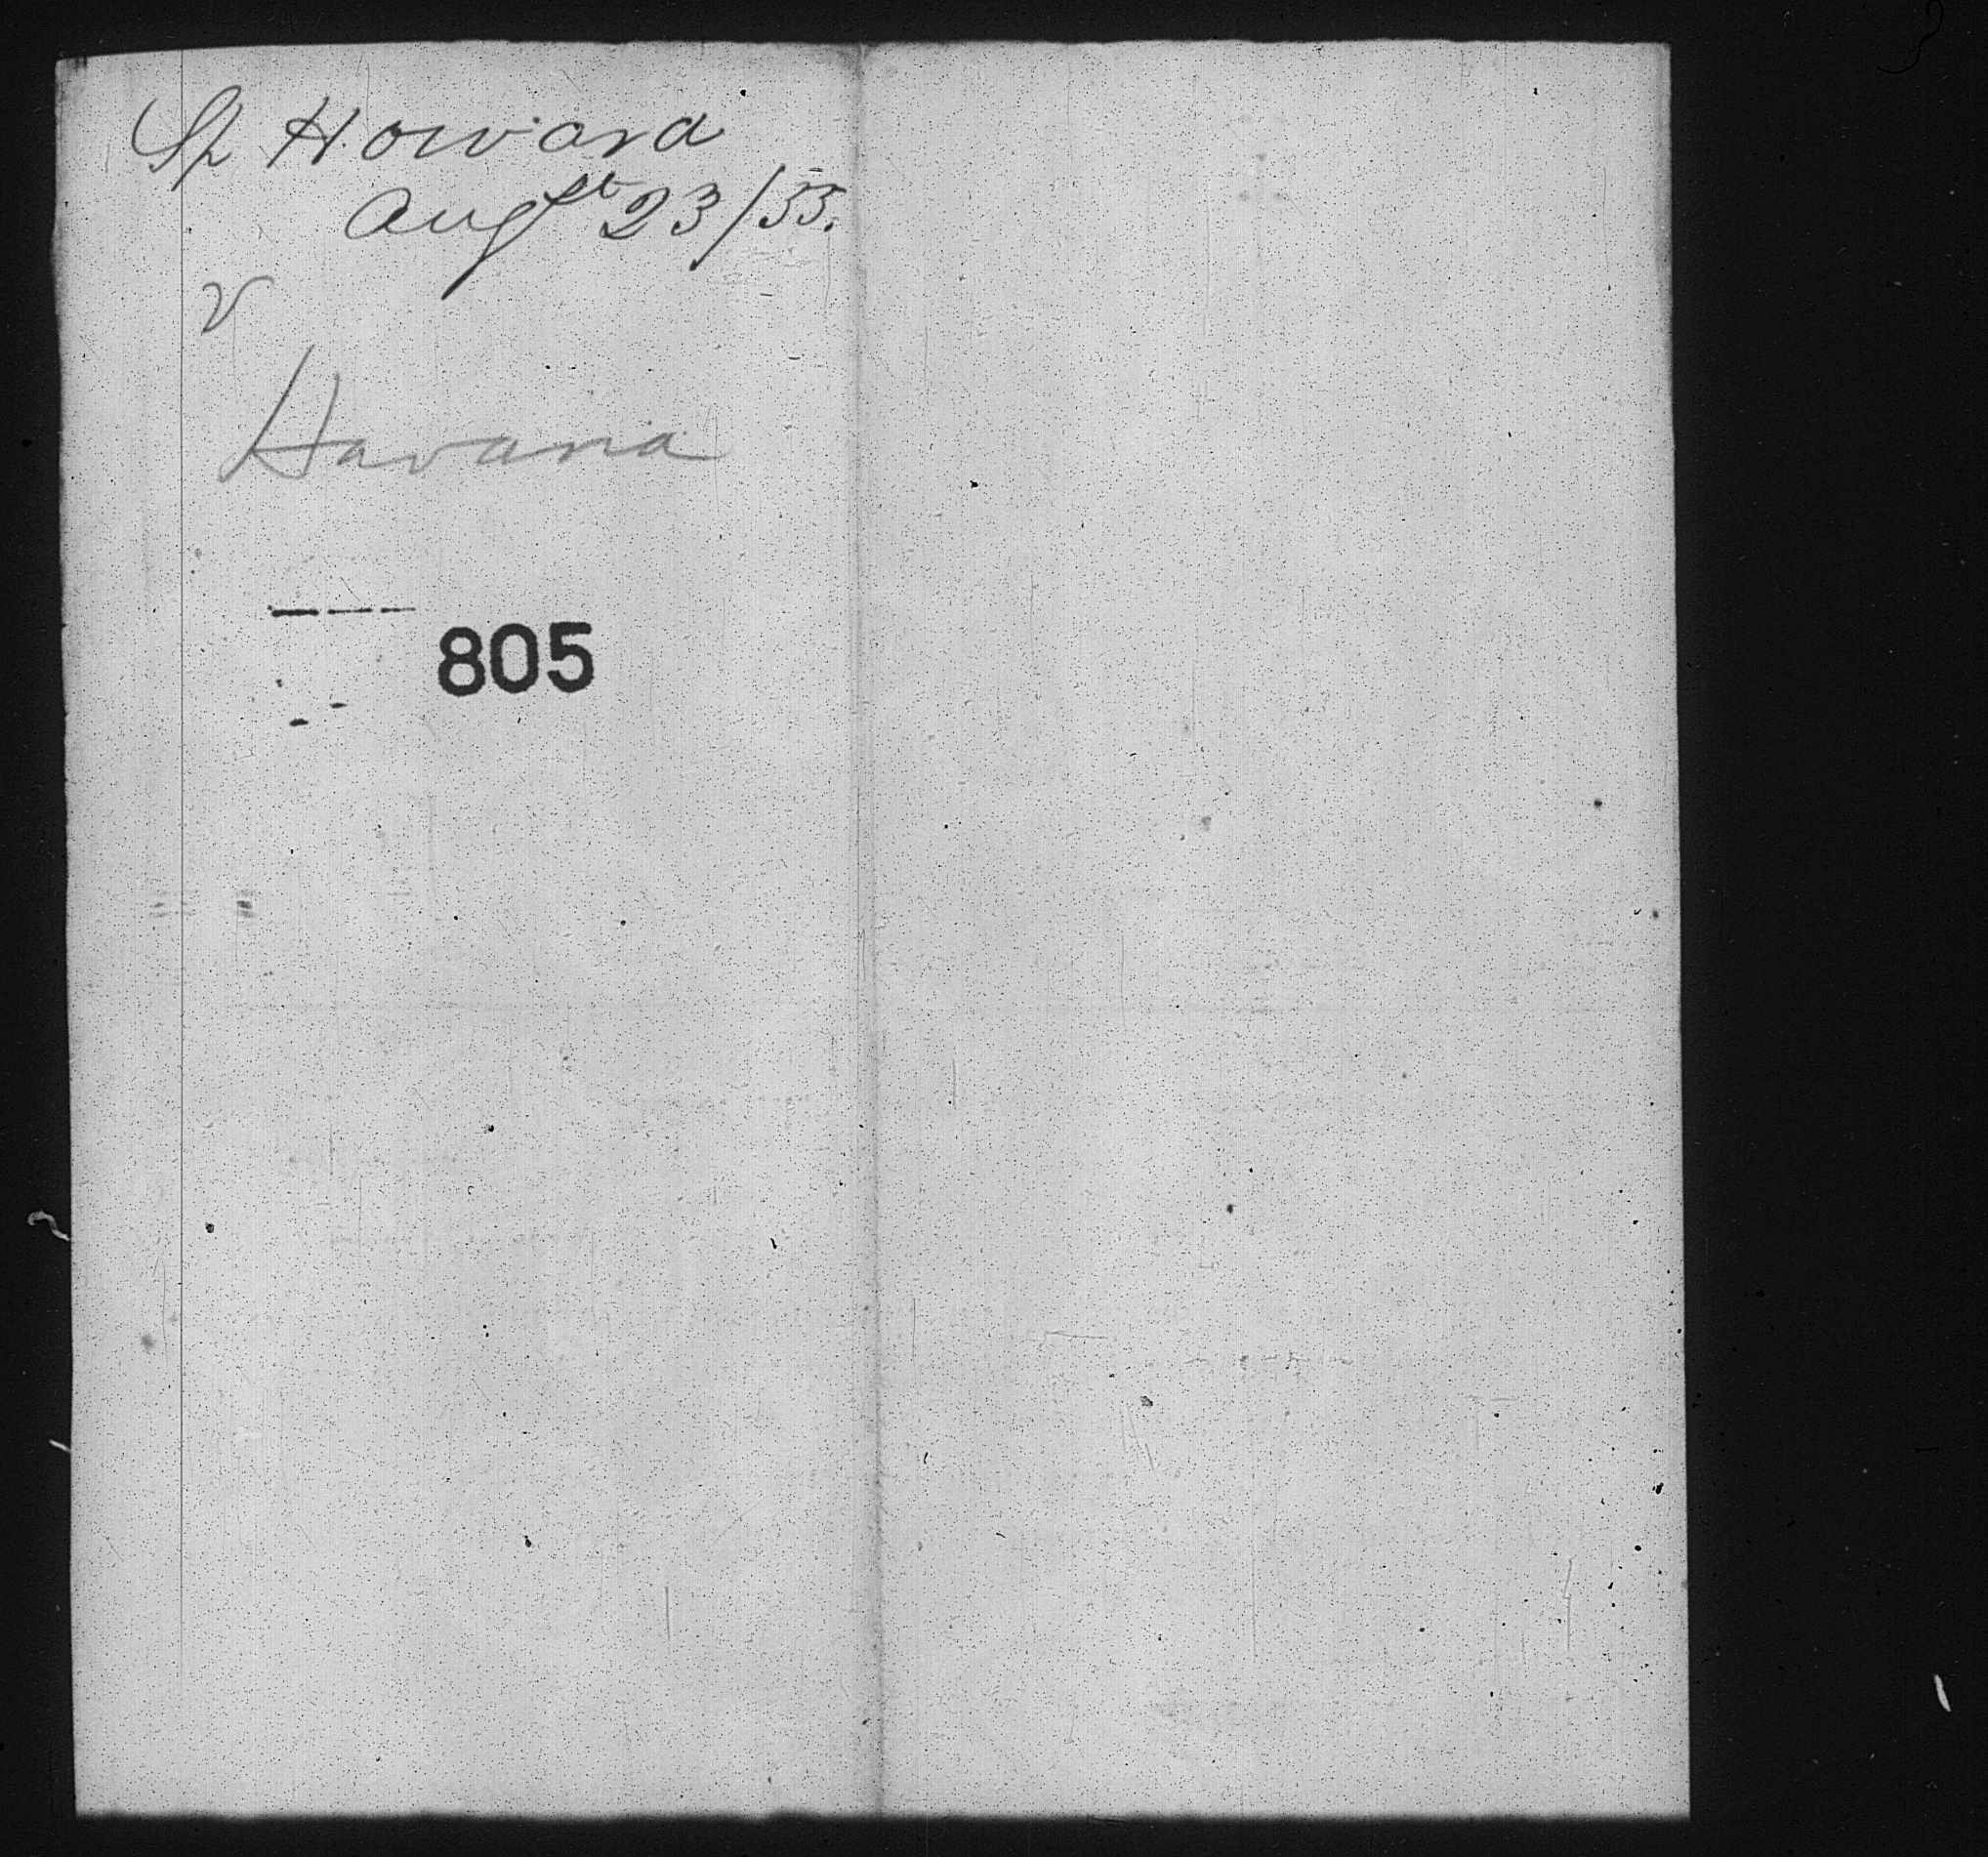 Sp Howard
Augst 23/55.
V
Havana
805